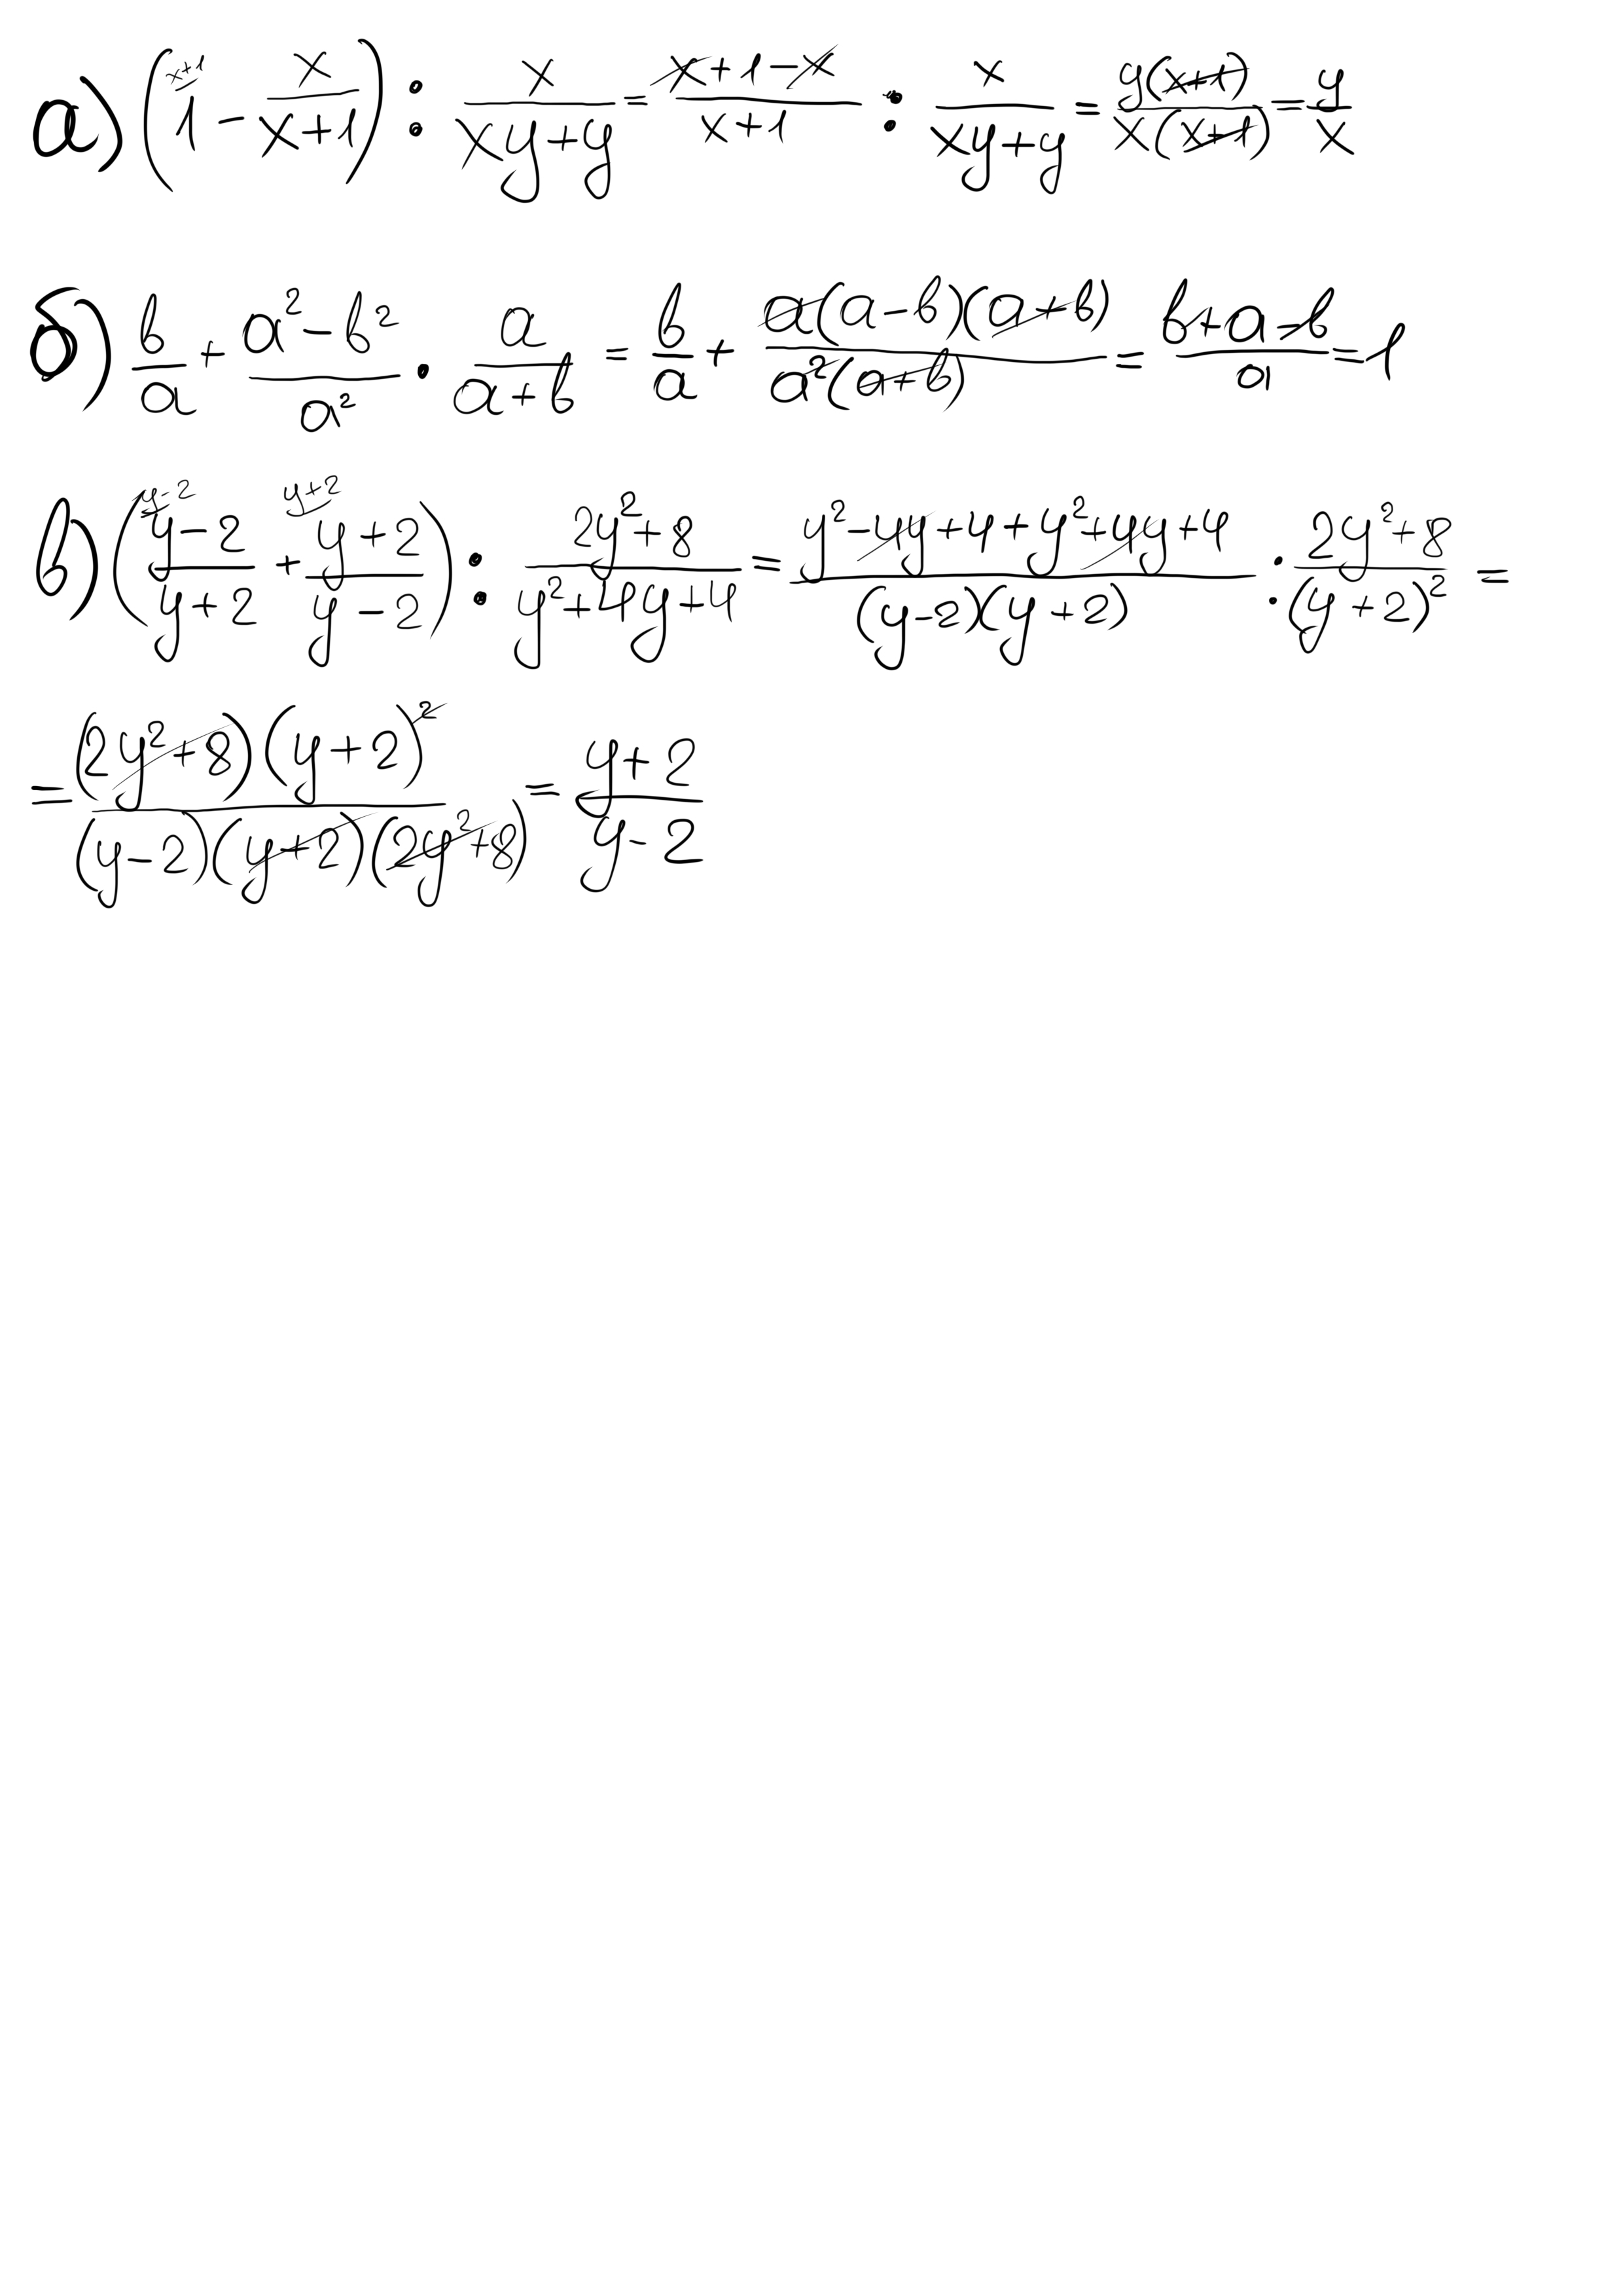 а) (1^{x+1} - \frac{x}{x+1}) : \frac{x}{xy+y} = \frac{x+1-x}{x+1} : \frac{x}{xy+y} = \frac{y(x+1)}{x(x+1)} = \frac{y}{x}
б) \frac{b}{a} + \frac{a^2-b^2}{a^2} \cdot \frac{a}{a+b} = \frac{b}{a} + \frac{a(a-b)(a+b)}{a^2(a+b)} = \frac{b+a-b}{a} = 1
в) (\frac{y-2}{y+2}^{y-2} + \frac{y+2}{y-2}^{y+2}) : \frac{2y^2+8}{y^2+4y+4} = \frac{y^2-4y+4+y^2+4y+4}{(y-2)(y+2)} : \frac{2y^2+8}{(y+2)^2} =
= \frac{(2y^2+8)(y+2)^2}{(y-2)(y+2)(2y^2+8)} = \frac{y+2}{y-2}